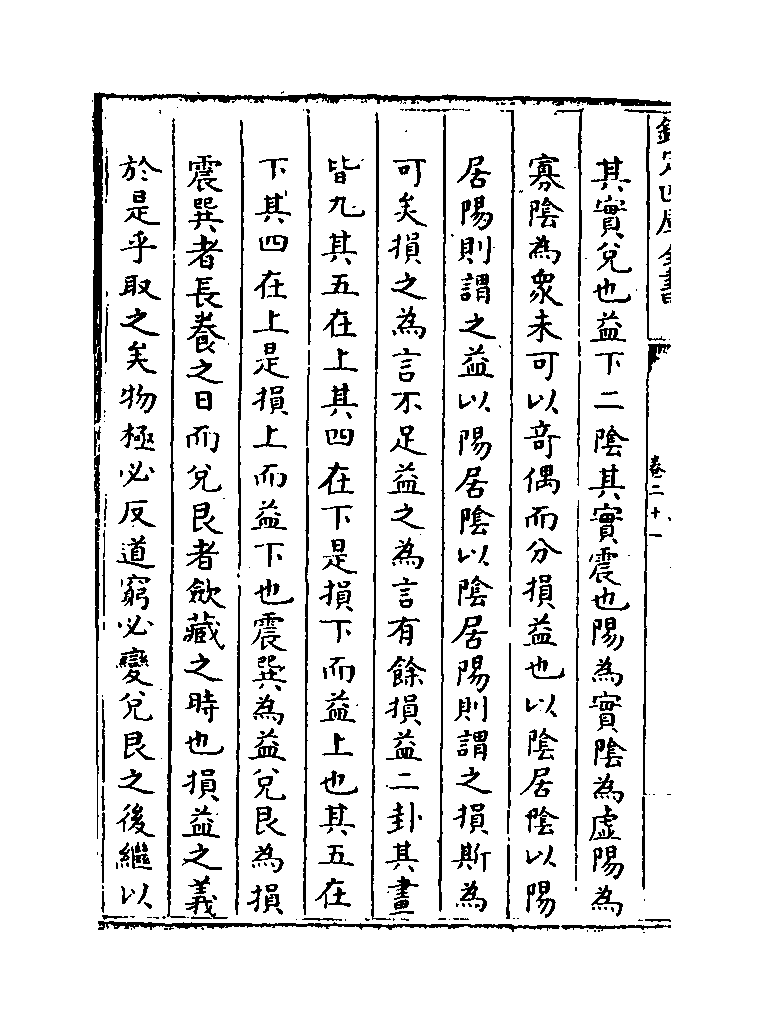 欽定四庫全書
卷二十一
其實兌也益下二陰其實震也陽為實陰為虛陽為
寡陰為衆未可以竒偶而分損益也以陰居陰以陽
居陽則謂之益以陽居陰以陰居陽則謂之損斯為
可矣損之為言不足益之為言有餘損益二卦其畫
皆九其五在上其四在下是損下而益上也其五在
下其四在上是損上而益下也震巽為益兌艮為損
震巽者長養之日而兌艮者斂藏之時也損益之義
於是乎取之矣物極必反道窮必變兌艮之後繼以